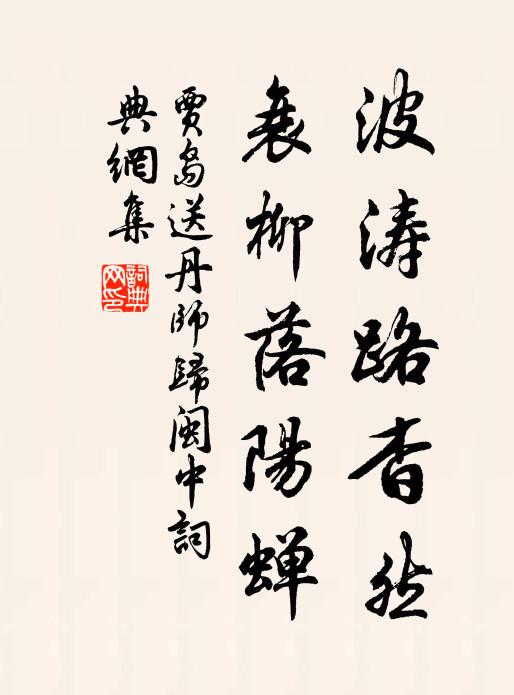 波涛路杳然
衰柳落陽蝉
賈島送丹師歸閩中詞
典網集
詞典网印